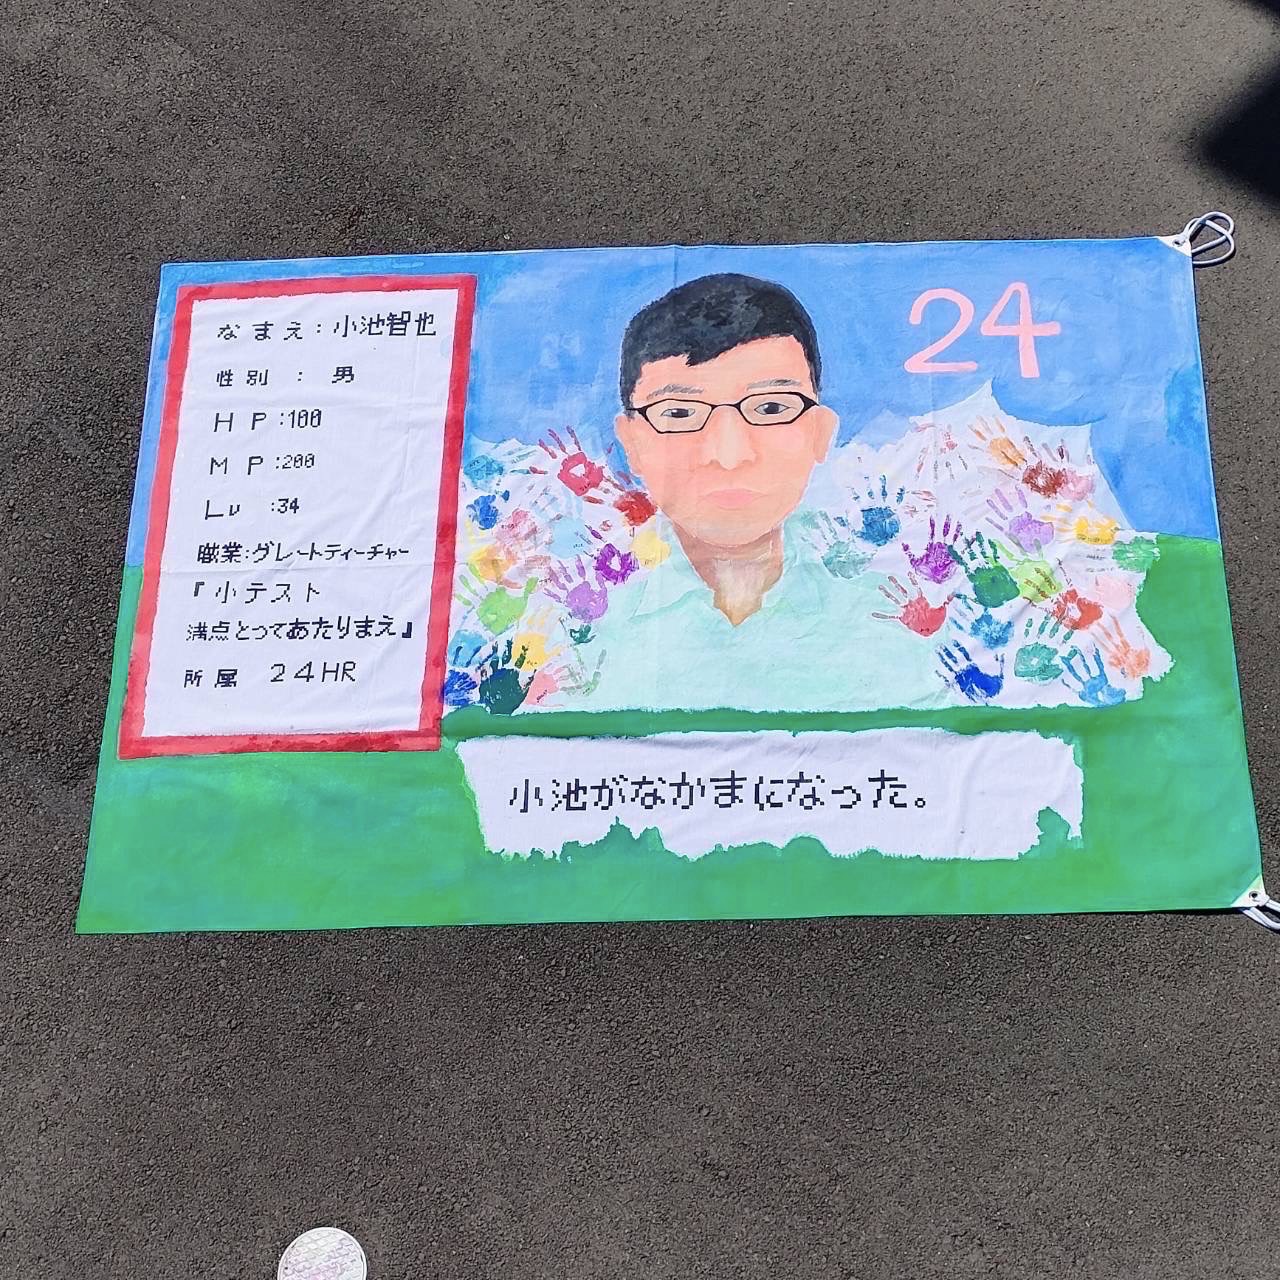 なまえ:小池智也
性別:男
HP:100
MP:200
Lv:34
職業:グレートティーチャー
『小テスト
満点とってあたりまえ』
所属 24HR
24
小池がなかまになった。